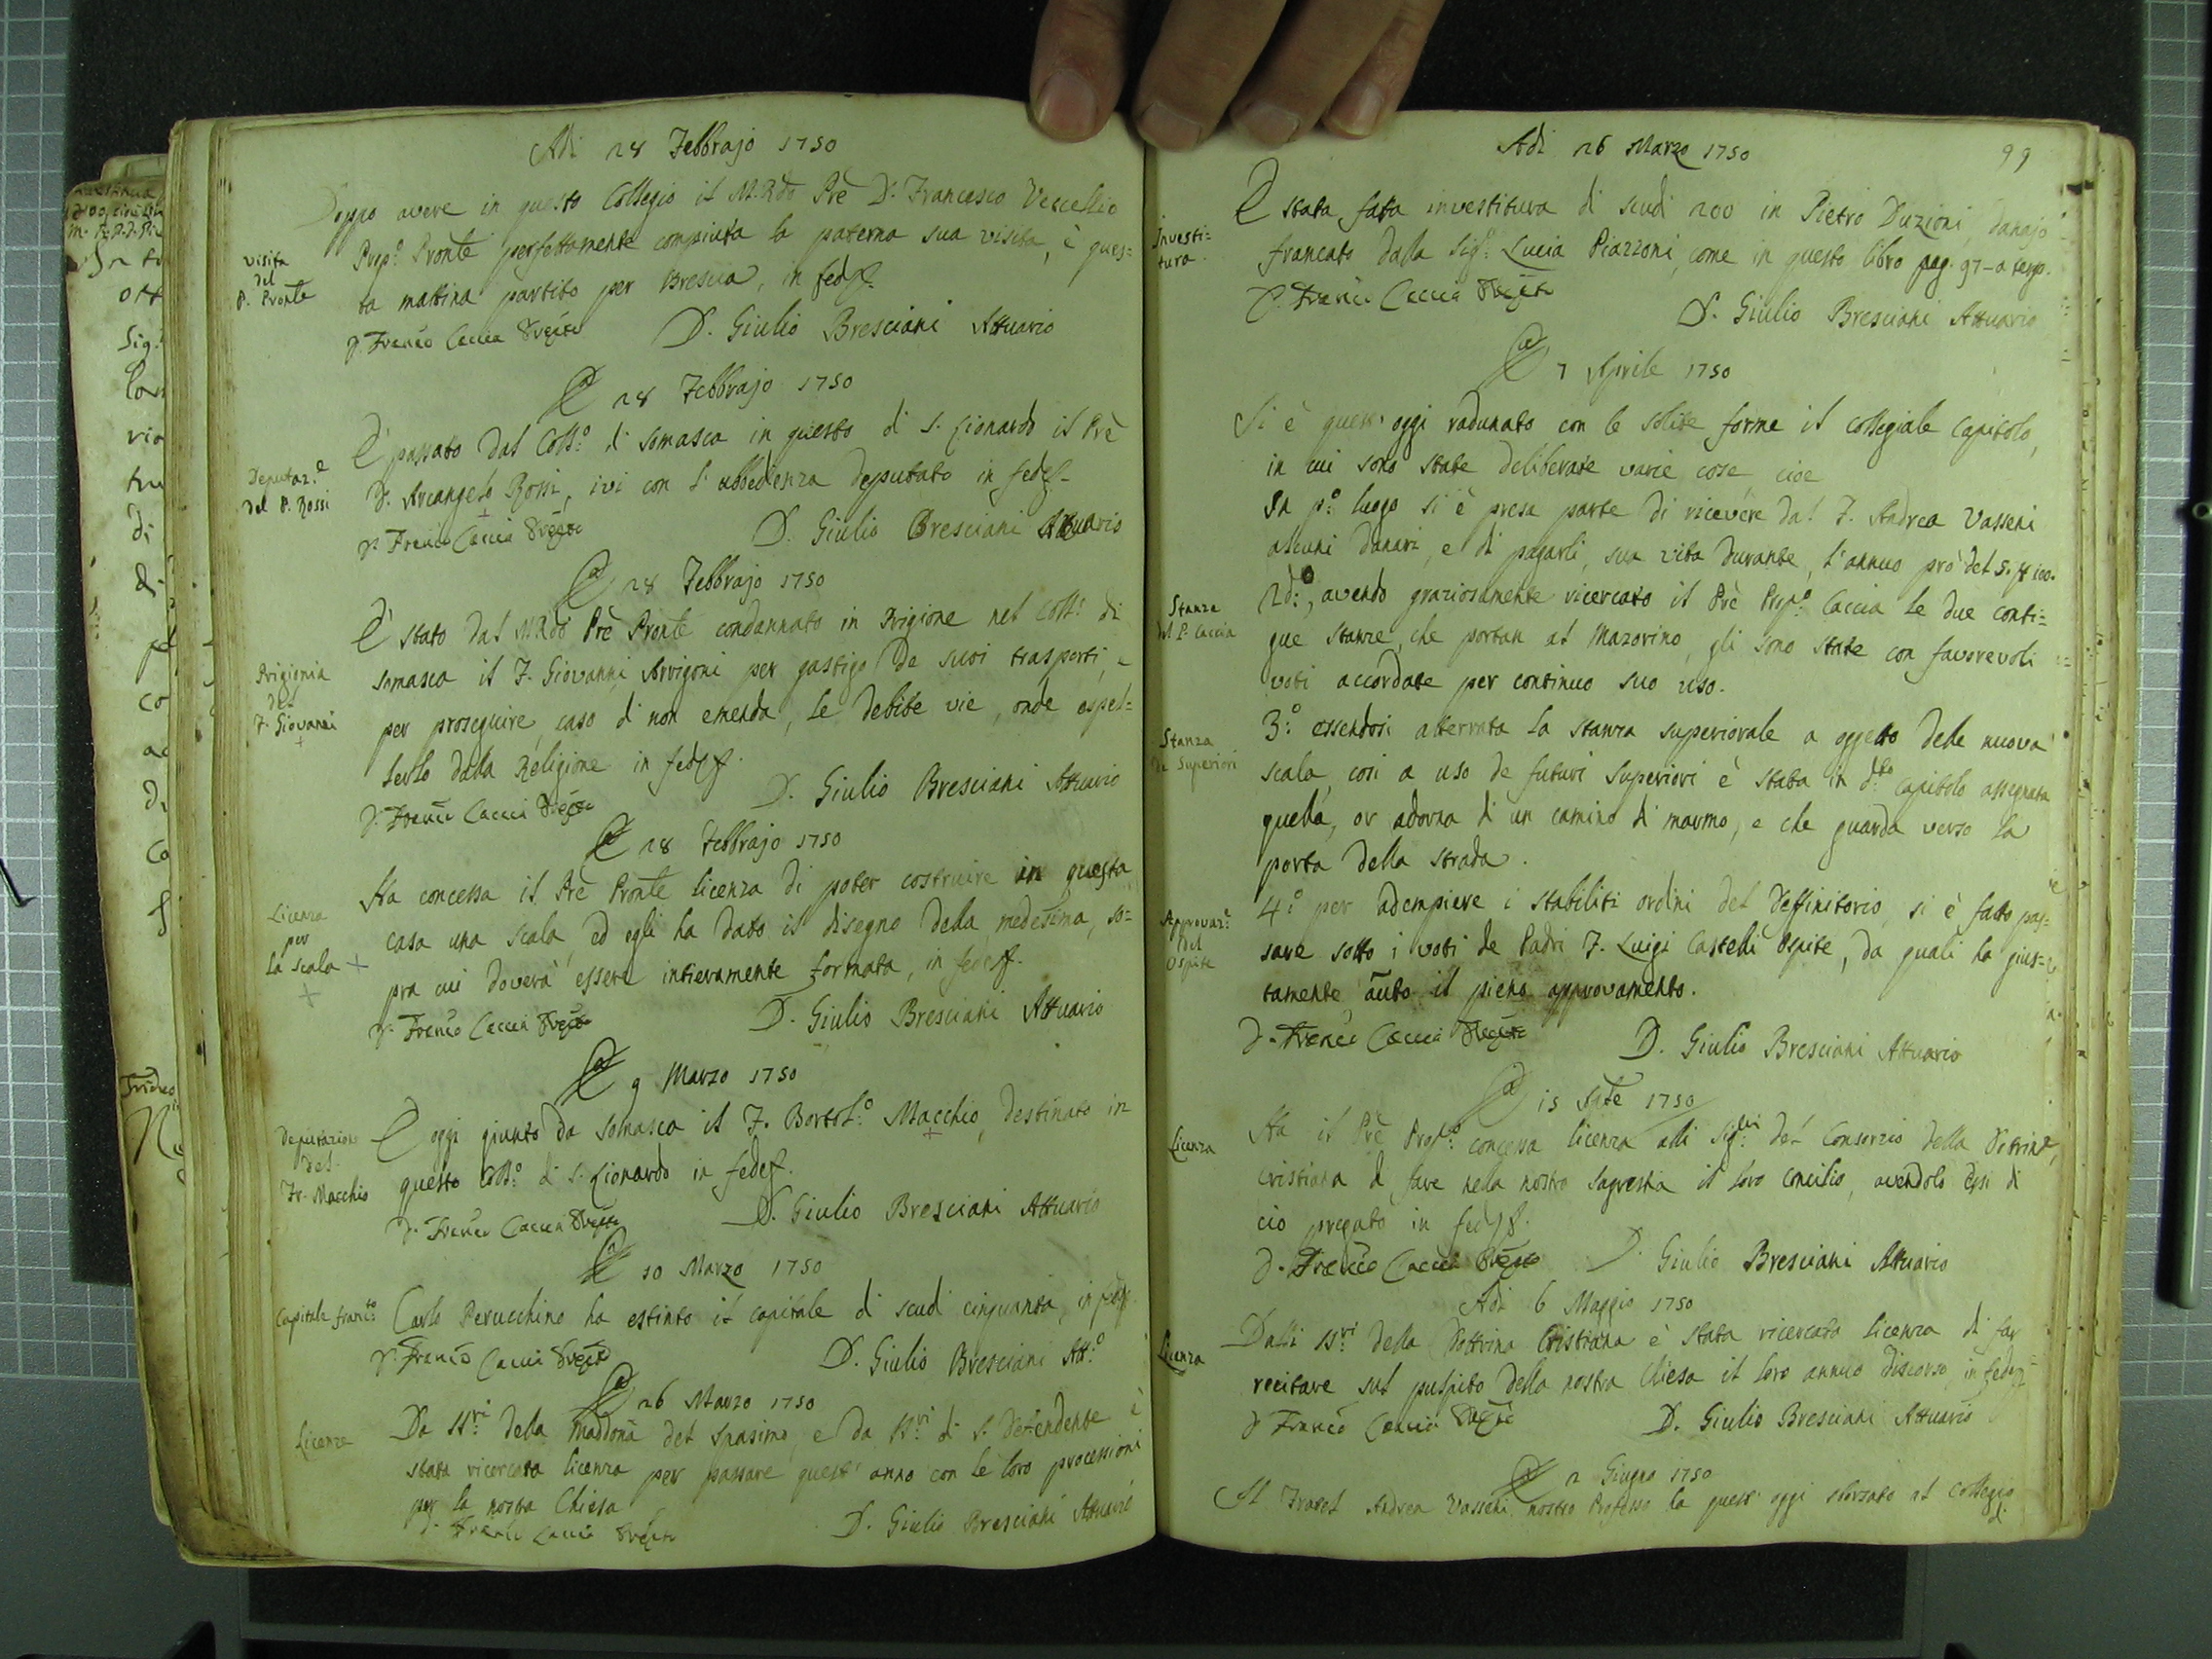 Adi 28 Febbrajo 1750
Doppo avere in questo Collegio il M. Rdo Prè D. Francesco Vecellio
Prep.o Pronle perfettamente compiuta la paterna sua visita, è ques=
ta mattina partito per Brescia, in fede
visita
del
P. Pronle
D. Franco Caccia Prepto D. Giulio Bresciani Attuario
28 Febbrajo 1750
È passato dal Coll.o di Somasca in questo di S. Lionardo il Prè
D. Arcangelo Rossi, ivi con l'ubbedienza deputato in fede
Deputaz.e
del P. Rossi
D. Franco Caccia Prepto D. Giulio Bresciani Attuario
28 Febbrajo 1750
È stato dal M.Rdo Prè Pronle condannato in Prigione nel Coll.o di
Somasca il F. Giovanni Arrigoni per gastigo de suoi trasporti,
per proseguire, caso di non emenda, le debite vie, onde espel=
lerlo dalla Religione in fede
Prigionia
del
F. Giovanni
D. Franco Caccia Prepto D. Giulio Bresciani Attuario
28 Febbrajo 1750
Ha concessa il Prè Pronle licenza di poter costruire in questa
casa una scala, ed egli ha dato il disegno della medesima, so=
pra cui doverà essere intieramente formata, in fede
Licenza
per
la scala
D. Franco Caccia Prepto D. Giulio Bresciani Attuario
9 Marzo 1750
È oggi giunto da Somasca il F. Bortol.o Macchio, destinato in
questo Coll.o di S. Lionardo in fede
Deputazion
del
Fr. Macchio
D. Franco Caccia Prepto D. Giulio Bresciani Attuario
10 Marzo 1750
Capitale franc.to Carlo Perucchino ha estinto il capitale di scudi cinquanta, in fede
D. Franco Caccia Prepto D. Giulio Bresciani Att.o
26 Marzo 1750
Licenza Da SS.ri della Maddona del Spasimo, e da SS.ri di S. Defendente è
stata ricercata licenza per passare quest'anno con le loro processioni
per la nostra Chiesa
D. Franco Caccia Prepto D. Giulio Bresciani Attuario
99
Adi 26 Marzo 1750
Investi=
tura
È stata fatta investitura di scudi 200 in Pietro Duzioni, danajo
francato dalla Sig.a Lucia Piazzoni, come in questo libro pag. 97 - a terg.
D. Franco Caccia Prepto
D. Giulio Bresciani Attuario
7 Aprile 1750
Si è quest'oggi radunato con le solite forme il collegiale Capitolo,
in cui sono state deliberate varie cose cioè
In p.o luogo si è presa parte di ricevere dal F. Andrea Vasseni
alcuni danari, e di pagarli, sua vita durante, l'annuo prò del 5. p 100.
2d.o, avendo graziosamente ricercato il Prè Prep.o Caccia le due conti=
gue stanze, che portan al Mazorino, gli sono state con favorevoli
voti accordate per continuo suo uso.
Stanze
del P. Caccia
3.o essendosi atterrata la stanza superiorale a oggetto della nuova
scala, così a uso de futuri superiori è stata in d.to Capitolo assegnata
quella, or adorna di un camino di marmo, e che guarda verso la
porta della strada.
Stanza
de Superiori
4.o per adempiere i stabiliti ordini del Deffinitorio, si è fatto pas=
sare sotto i voti de Padri F. Luigi Castelli Ospite, da quali ha gius=
tamente auto il pieno approvamento.
Approvaz.e
del
Ospite
D. Franco Caccia Prepto
D. Giulio Bresciani Attuario
15 1750
Licenza Ha il Prè Prep.o concessa licenza alli Sig.ri del Consorzio della Dotrina
Cristiana di fare nella nostra sagrestia il loro concilio, avendolo essi di
ciò pregato in fede
D. Franco Caccia Prepto D. Giulio Bresciani Attuario
Adi 6 Maggio 1750
Licenza Dalli SS.ri della Dottrina Cristiana è stata ricercata licenza di far
recitare sul pulpito della nostra Chiesa il loro annuo discorso in fede
D. Franco Caccia Prepto D. Giulio Bresciani Attuario
2 Giugno 1750
Il Fratel Andrea Vasseni nostro Professo ha quest'oggi sborsato al Collegio
di